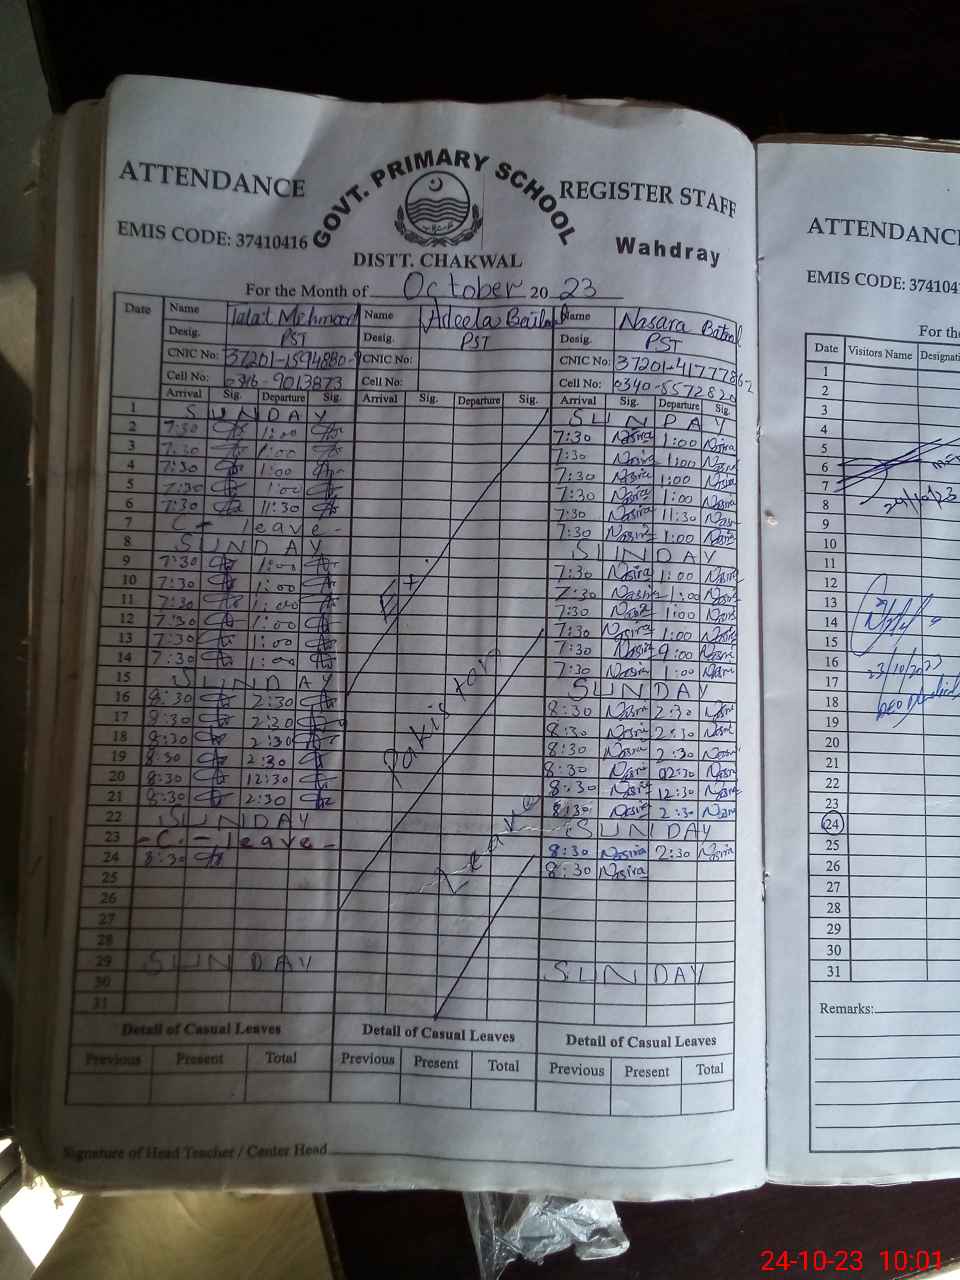 ATTENDANCE
GOVT. PRIMARY SCHOOL
REGISTER STAFF
EMIS CODE: 37410416
Wahdray
DISTT. CHAKWAL
For the Month of October 20 23
Date Name Talat Mehmood Name Adeela Name Nasara Batool
Desig. PST Desig. PST Desig. PST
CNIC No: 37201-1594880-9 CNIC No: CNIC No: 37201-4177786-2
Cell No: 0346-9013873 Cell No: Cell No: 0340-8572820
Arrival Sig. Departure Sig. Arrival Sig. Departure Sig. Arrival Sig. Departure Sig.
1 SUNDAY SUNDAY
2 7:30 1:00 7:30 Nasira 1:00 Nasira
3 7:30 1:00 7:30 Nasira 1:00 Nasira
4 7:30 1:00 7:30 Nasira 1:00 Nasira
5 7:30 1:00 7:30 Nasira 1:00 Nasira
6 7:30 11:30 7:30 Nasira 11:30 Nasira
7 C- leave- 7:30 Nasira 1:00 Nasira
8 SUNDAY SUNDAY
9 7:30 1:00 7:30 Nasira 1:00 Nasira
10 7:30 1:00 7:30 Nasira 1:00 Nasira
11 7:30 1:00 7:30 1:00
12 7:30 1:00 7:30 Nasira 1:00
13 7:30 1:00 7:30 Nasira 9:00
14 7:30 1:00 7:30 Nasira 1:00
15 SUNDAY SUNDAY
16 8:30 2:30 8:30 2:30
17 8:30 2:20 8:30 Nasira 2:30
18 8:30 2:30 8:30 Nasira 2:30
19 8:30 2:30 8:30 02:30
20 8:30 12:30 8:30 Nasira 12:30
21 8:30 2:30 8:30 Nasira 2:30
22 SUNDAY SUNDAY
23 -C.- leave- 8:30 Nasira 2:30 Nasira
24 8:30 8:30 Nasira
25
26
27
28
29 SUNDAY SUNDAY
30
31
Ex.
Pakistan
Leave
Detail of Casual Leaves Detail of Casual Leaves Detail of Casual Leaves
Previous Present Total Previous Present Total Previous Present Total
Signature of Head Teacher / Center Head
ATTENDANC
EMIS CODE: 3741041
For the
Date Visitors Name Designati
1
2
3
4
5
6
7
8 24/10/23
9
10
11
12
13
14
15
16 23/10/2023
17
18
19
20
21
22
23
24
25
26
27
28
29
30
31
Remarks:
24-10-23 10:01